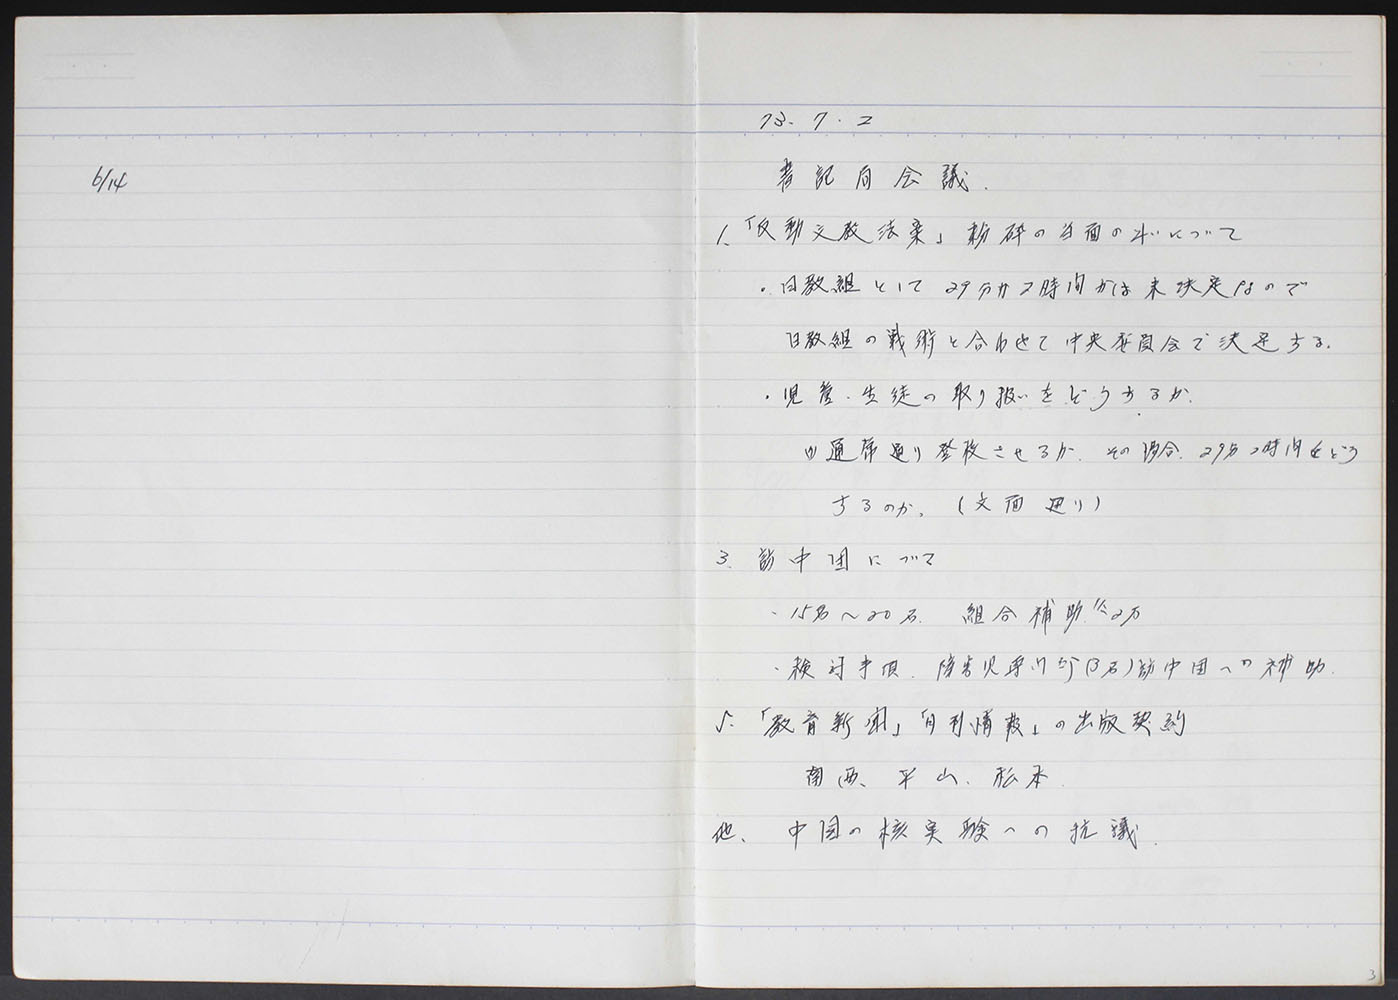 6/14
73. 7. 2
書記局会議.
1. 「反動文教法案」粉砕の当面の斗いについて
・日教組として 29分か2時間かは未決定なので
日教組の戦術と合わせて中央委員会で決定する.
・児童・生徒の取り扱いをどうするか.
(1) 通常通り登校させるか. その場合. 29分 2時間をどう
するのか. (文面通り)
3. 訪中団について
・15名〜20名. 組合補助 2万
・検討事項. 障害児専門部(3名)訪中団への補助.
5. 「教育新聞」「月刊情報」の出版契約
南西、平山、松本.
他、 中国の核実験への抗議.
3